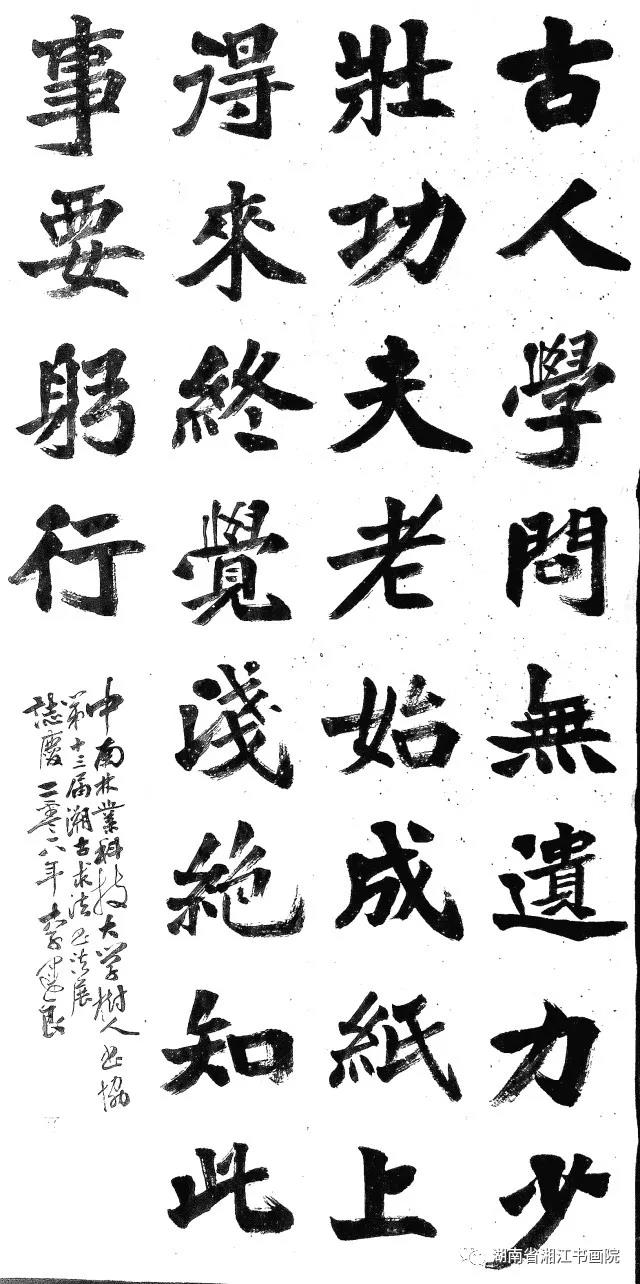 古人學問無遺力少
壯功夫老始成紙上
得來終覺淺絕知此
事要躬行
中南林業科技大学樹人书協
第十三届溯古求法书法展
誌慶 二零一八年 李建良
湖南省湘江书画院